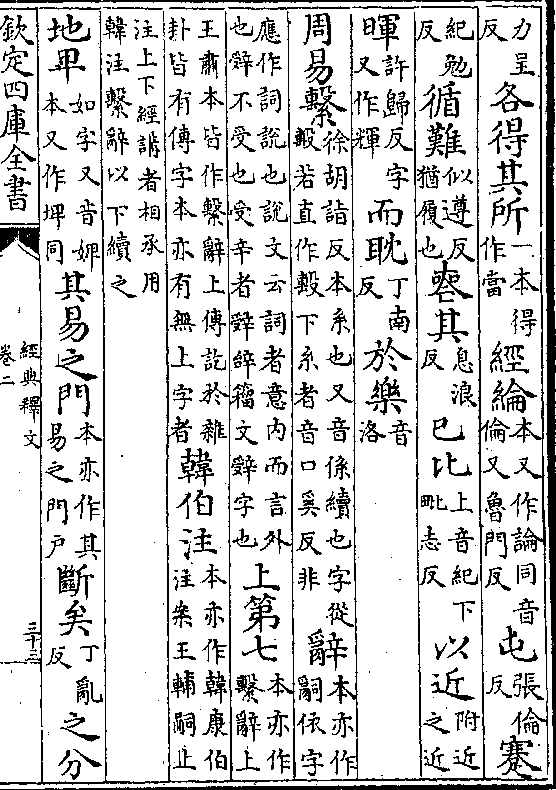 力呈反各得其所一本得作當經綸本又作論同音倫又魯門反屯張倫反蹇
紀勉反循難似遵反猶履也喪其息浪反已比上音紀下毗志反以近附近之近
暉許歸反字又作輝而耽丁南反於樂音洛
周易繫徐胡詣反本系也又音係續也字從毄若直作毄下糸者音口奚反非辭本亦作嗣依字
應作詞說也說文云詞者意內而言外也辤不受也受辛者辤辝籀文辤字也上第七本亦作繫辭上
王肅本皆作繫辭上傳訖於雜卦皆有傳字本亦有無上字者韓伯注本亦作韓康伯注案王輔嗣止
注上下經講者相承用韓注繫辭以下續之
地卑如字又音婢本又作埤同其易之門本亦作其易之門戶斷矣丁亂反之分
欽定四庫全書
經典釋文
卷二
三十三